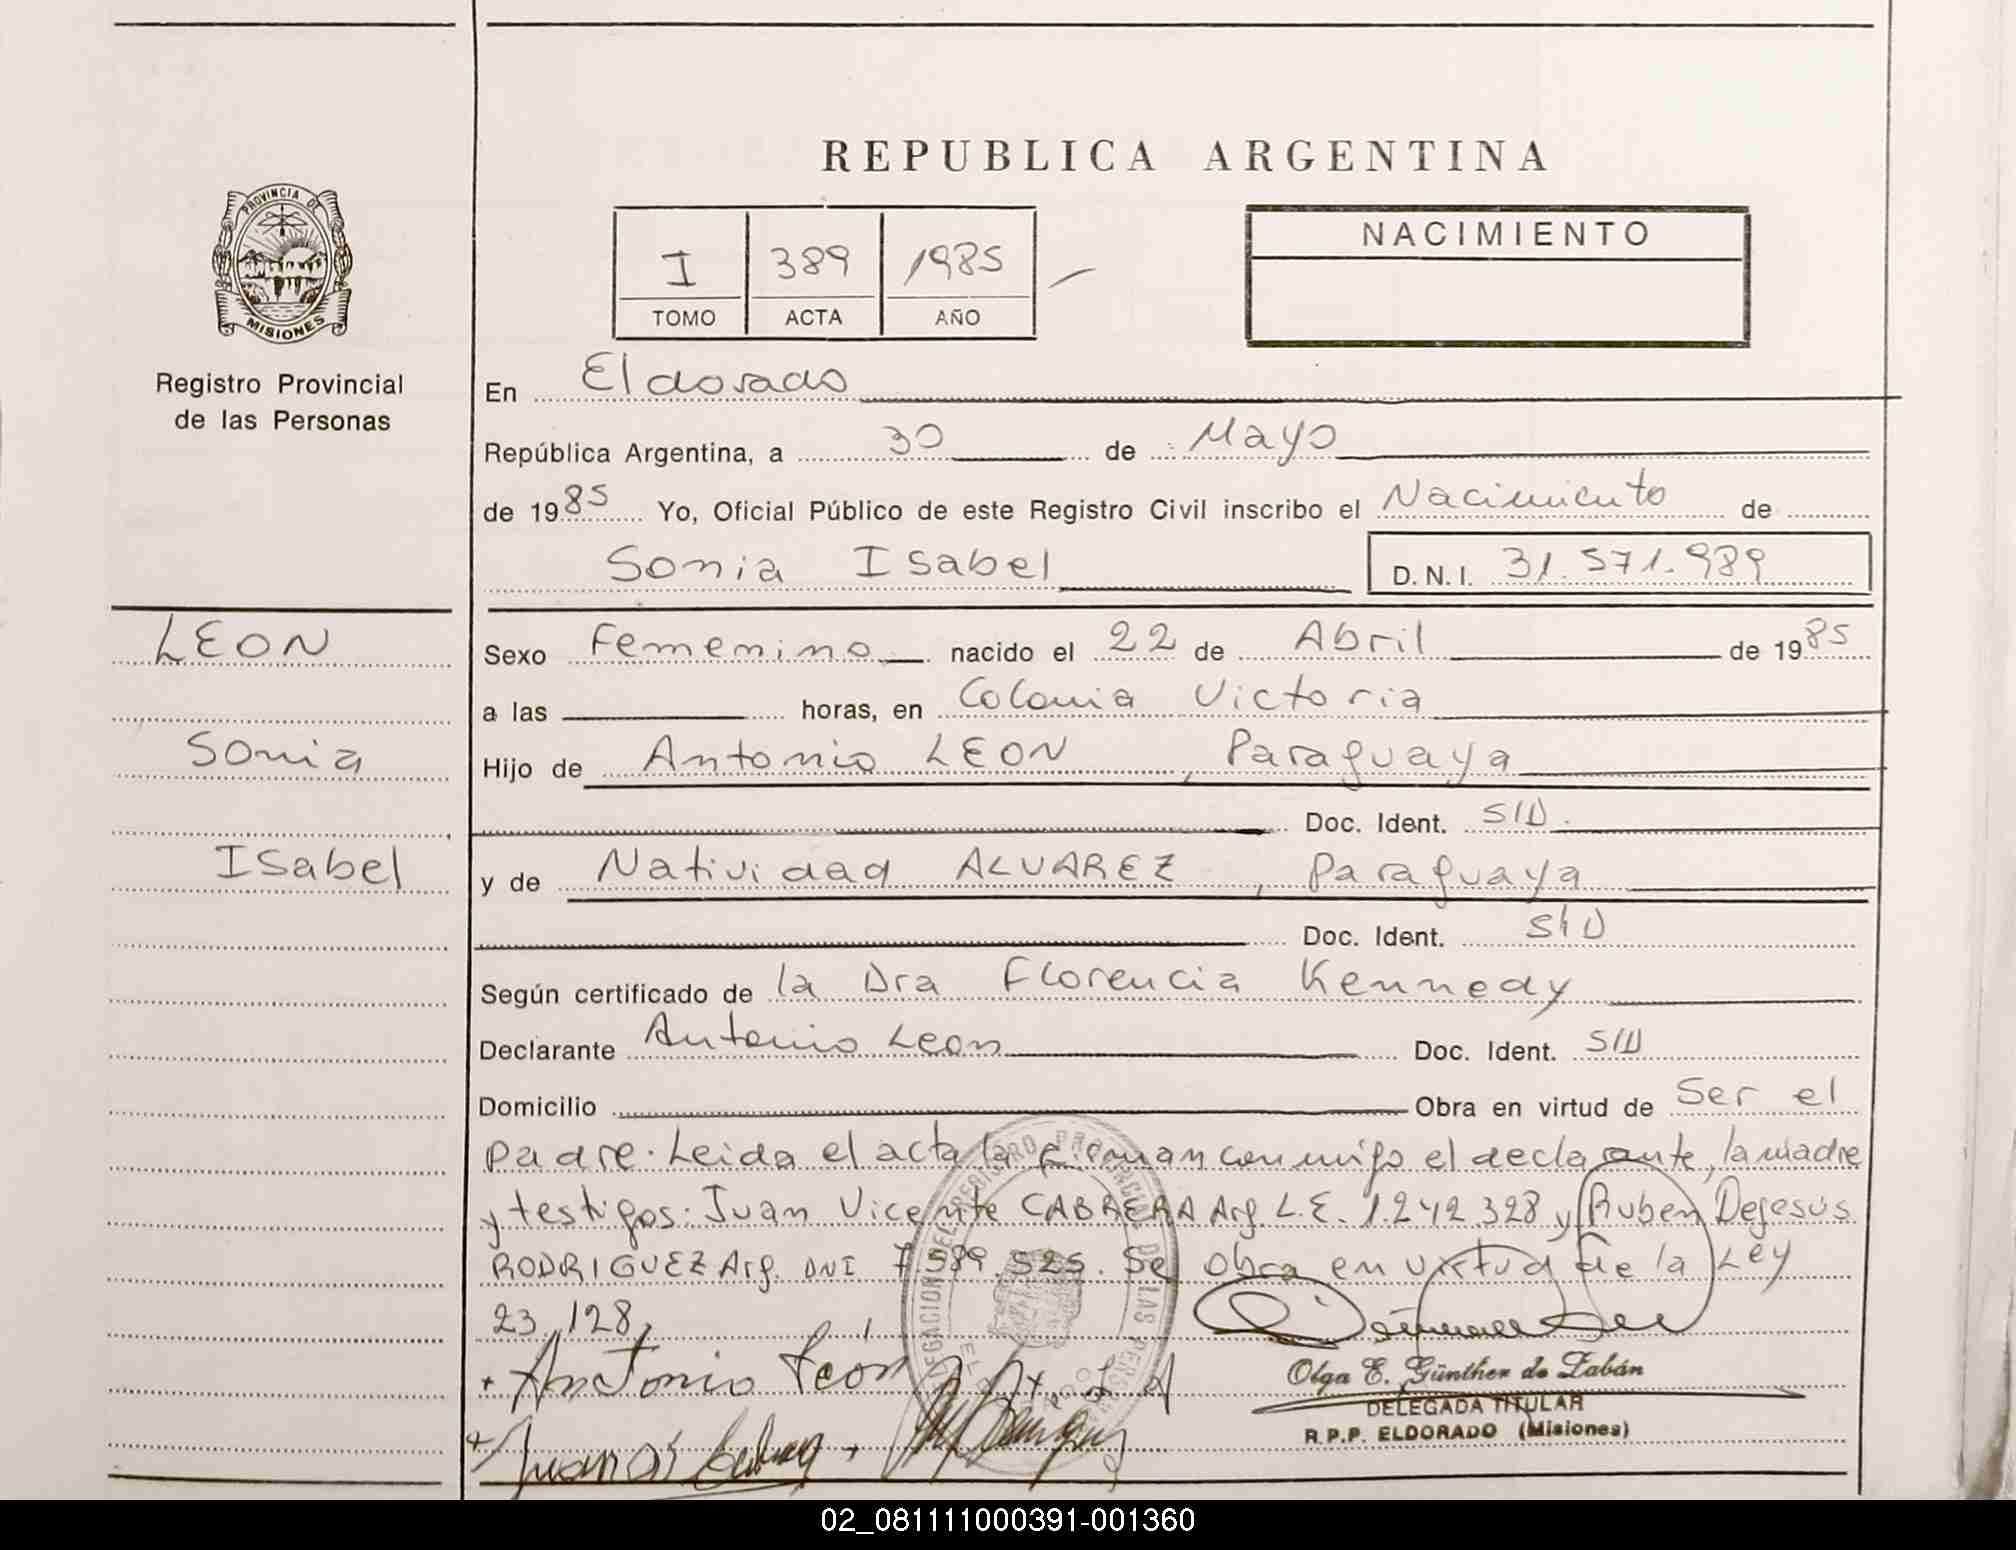 REPUBLICA ARGENTINA
PROVINCIA DE
MISIONES
Registro Provincial
de las Personas
I 389 1985
TOMO ACTA AÑO
NACIMIENTO
En Eldorado
República Argentina, a 30 de Mayo
de 1985 Yo, Oficial Público de este Registro Civil inscribo el Nacimiento de
Sonia Isabel D.N.I. 31.571.989
LEON
Sonia
Isabel
Sexo Femenino nacido el 22 de Abril de 1985
a las horas, en Colonia Victoria
Hijo de Antonio LEON, Paraguaya
Doc. Ident. S/D.
y de Natividad ALVAREZ, Paraguaya
Doc. Ident. S/D
Según certificado de la Dra Florencia Kennedy
Declarante Antonio Leon Doc. Ident. S/D
Domicilio Obra en virtud de Ser el
padre. Leida el acta la firman conmigo el declarante, la madre
y testigos: Juan Vicente CABRERA Arg. L.E. 1.242.328 y Ruben Dejesús
RODRIGUEZ Arg. DNI 7.589.525. Se obra en virtud de la Ley
23.128,
Antonio León
Olga E. Günther de Zabán
DELEGADA TITULAR
R.P.P. ELDORADO (Misiones)
02_081111000391-001360